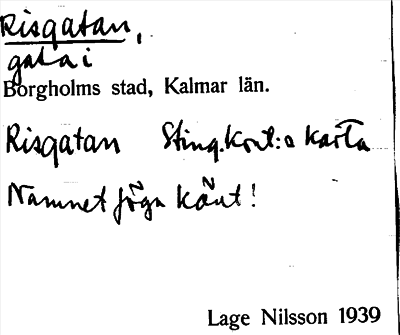 Risgatan,
gata i
Borgholms stad, Kalmar län.
Risgatan Sting.kont:s karta
Namnet föga känt!
Lage Nilsson 1939